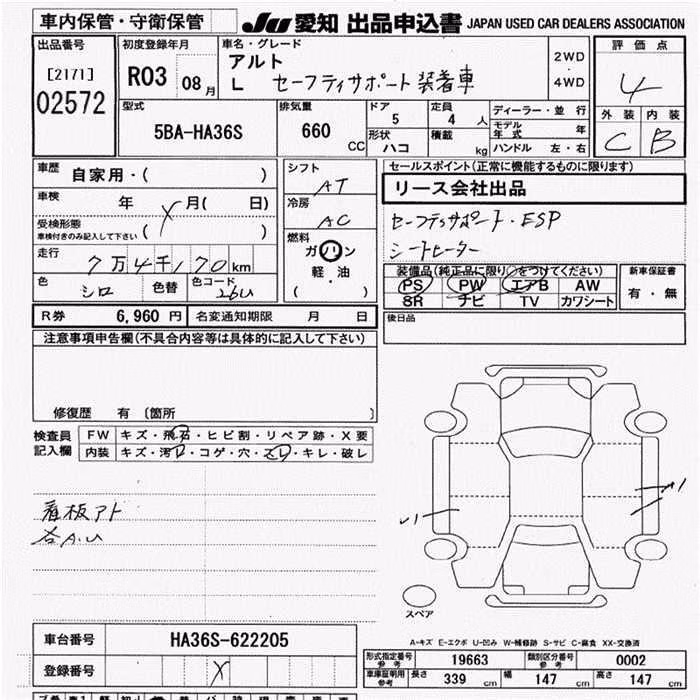 車内保管・守衛保管 JU愛知 出品申込書 JAPAN USED CAR DEALERS ASSOCIATION
出品番号 初度登録年月 車名・グレード 評価点
[2171] R03 08月 アルト 2WD
02572 L セーフティサポート装着車 4WD 4
型式 排気量 ドア 定員 ディーラー・並行 外装 内装
5BA-HA36S 660 CC 5 4人 モデル年式 年 C B
形状 ハコ 積載 kg ハンドル 左・右
車歴 自家用・( ) シフト AT セールスポイント(正常に機能するものに限ります)
車検 年 月( 日) 冷房 AC リース会社出品
受検形態 ( ) セーフティサポート・ESP
車検付きのみ記入して下さい シートヒーター
走行 7万4千170km 燃料 ガソリン 軽・油 ( )
装備品(純正品に限り○をつけてください) 新車保証書
PS PW エアB AW 有・無
SR ナビ TV カワシート
色 シロ 色替 色コード 26U
R券 6,960円 名変通知期限 月 日 後日品
注意事項申告欄(不具合内容等は具体的に記入して下さい)
修復歴 有 〔箇所 〕
検査員 FW キズ・飛石・ヒビ割・リペア跡・X要
記入欄 内装 キズ・汚レ・コゲ・穴・スレ・キレ・破レ
看板アト
各A.U
スペア
A-キズ E-エクボ U-凹み W-補修跡 S-サビ C-腐食 XX-交換済
車台番号 HA36S-622205
登録番号
形式指定番号 参考 19663 類別区分番号 参考 0002
車庫証明用 参考 長さ 339 cm 幅 147 cm 高さ 147 cm